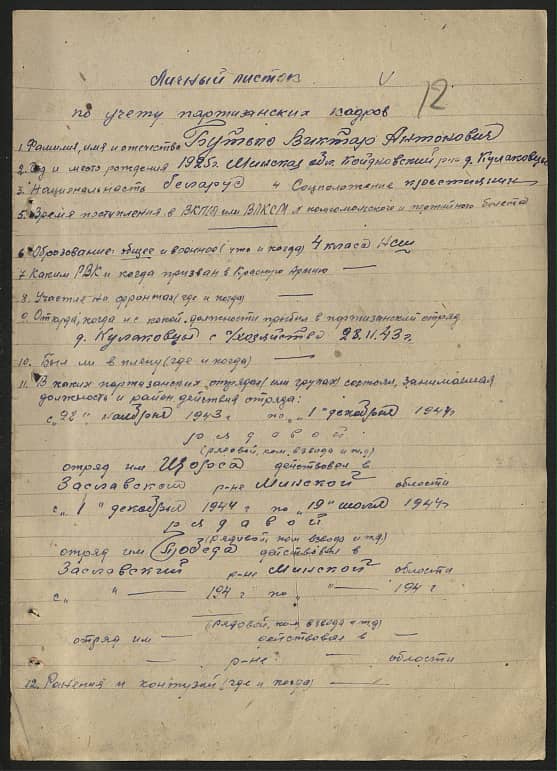 Личный листок
12
по учету партизанских кадров
1. Фамилия, имя и отчество Бутько Виктар Антонович
2. Год и место рождения 1925 г. Минская обл. Койдновский р-н д. Кулаковцы
3. Национальность беларус 4 Соцположение крестьянин
5. Время поступления в ВКПб или ВЛКСМ № комсомольского и партийного билета
6. Образование: общее и военное (что и когда) 4 класа Нсш
7. Каким РВК и когда призван в Красную Армию —
8. Участие на фронтах (где и когда) —
9. Откуда, когда и с какой должности прибыл в партизанский отряд
д. Кулаковцы с с/хозяйства 28.11.43 г.
10. Был ли в плену (где и когда) —
11. В каких партизанских отрядах (или группах) состоял, занимаемая
должность и район действия отряда:
с „28" ноября 1943 г по „1" декабря 1944 г
рядавой
(рядовой, ком. взвода и т.д)
отряд им Щорса действовал в
Заславском р-не Минской области
с „1" декабря 1944 г по „19" июля 1944 г
рядавой
(рядовой, ком взвода и т.д)
отряд им Победа действовал в
Заславский р-не Минской области
с „ " — 194 г по „ " — 194 г
(рядовой, ком взвода и т.д)
отряд им — действовал в —
— р-не — области
12. Ранения и контузии (где и когда) —